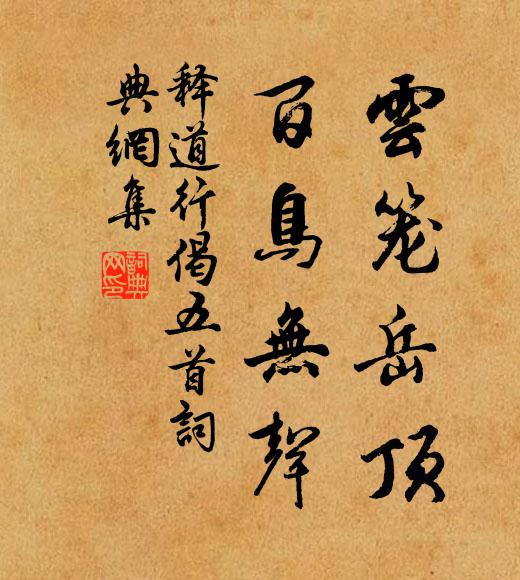 雲笼岳頂
百鳥無聲
释道行偈五首詞
典網集
詞典網印